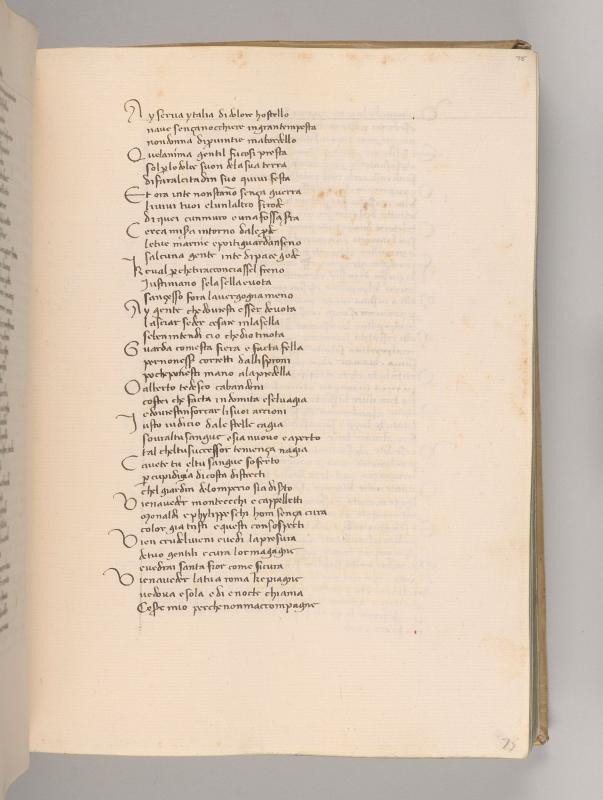 75
Ay serva ytalia di dolore hostello
nave senza nocchiere in gran tempesta
non donna di pvintie ma bordello
Quelanima gentil fu cosi presta
sol plo dolce suon dela sua terra
di fare al citadin suo quivi festa
Et ora inte nonstano senza guerra
li vivi tuoi elun laltro si rode
di quei cunmuro e una fossa sra
Cerca misera intorno dale pde
le tue marine e poi ti guarda inseno
salcuna gente inte di pace gode
Keval pche ti racconciassel freno
Justiniano sela sella e vota
sanzesso fora la vergogna meno
Ay gente che dovresti esser devota
lasciar seder cesare inla sella
se ben intendi cio che dio ti nota
Guarda com esta fiera e facta fella
per nonesser corretti dalli sproni
poi che ponesti mano ala predella
O alberto tedesco cabandoni
costei che facta indomita e selvagia
e dovresti inforcar li suoi arcioni
Justo iudicio dale stelle cagia
sovral tu sangue e sia nuovo e aperto
tal chel tu successor temenza nagia
Cavete tu el tu sangue soferto
p cupidigia di costa distrecti
chel giardin delomperio sia disto
Vien a veder montecchi e cappelletti
monaldi e phylippeschi hom senza cura
color gia tristi e questi con sospecti
Vien crudel vieni e vedi la presura
de tuo gentili e cura lor magagne
e vedrai santa fior come sicura
Vien a veder la tua roma ke piagne
vedova e sola e di e nocte chiama
Cesare mio perche non maccompagne
75